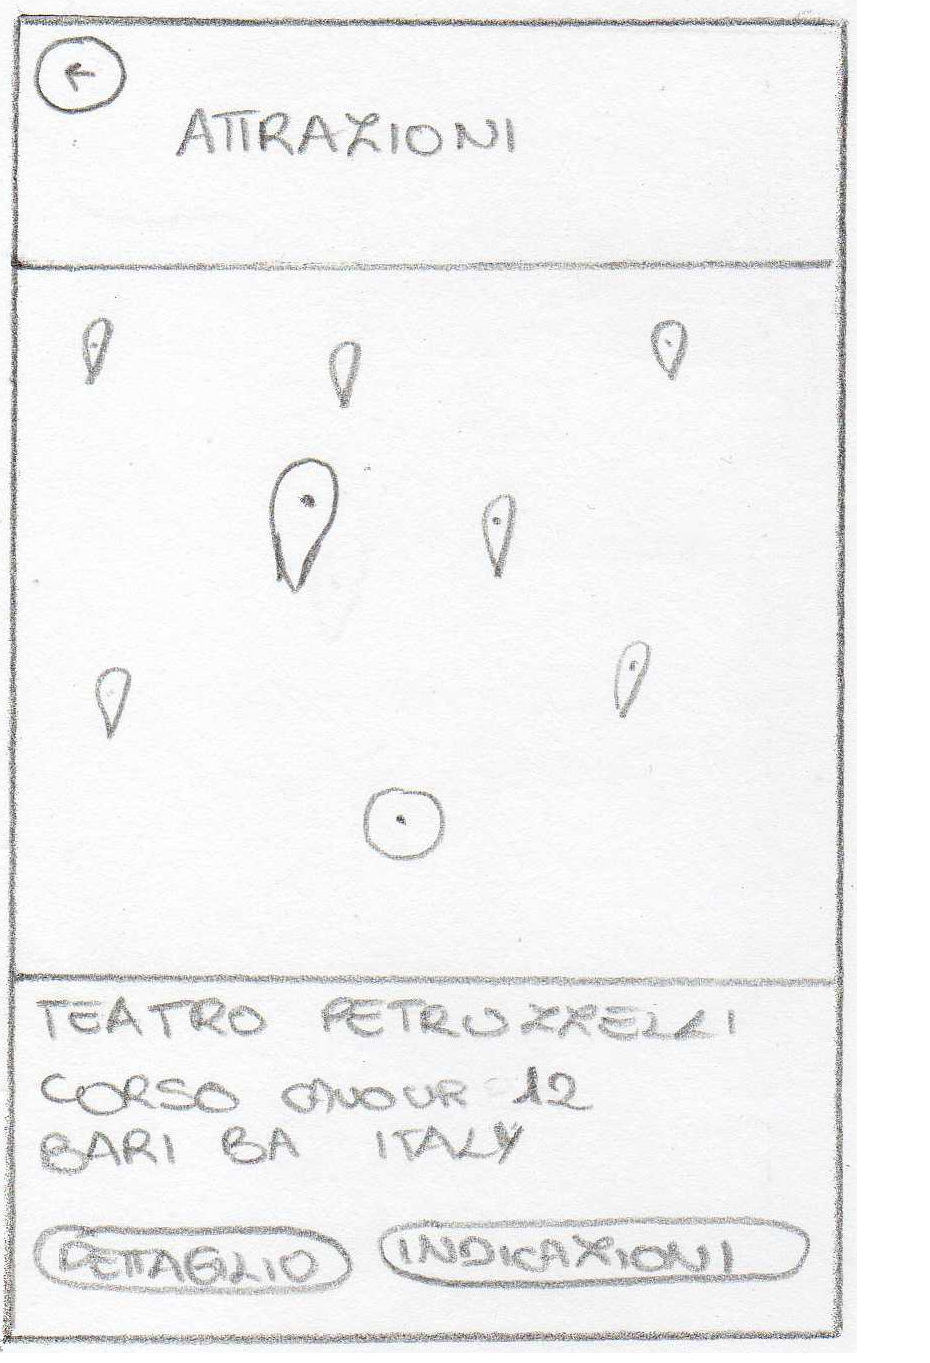 ATTRAZIONI
TEATRO PETRUZZELLI
CORSO CAVOUR 12
BARI BA ITALY
DETTAGLIO
INDICAZIONI